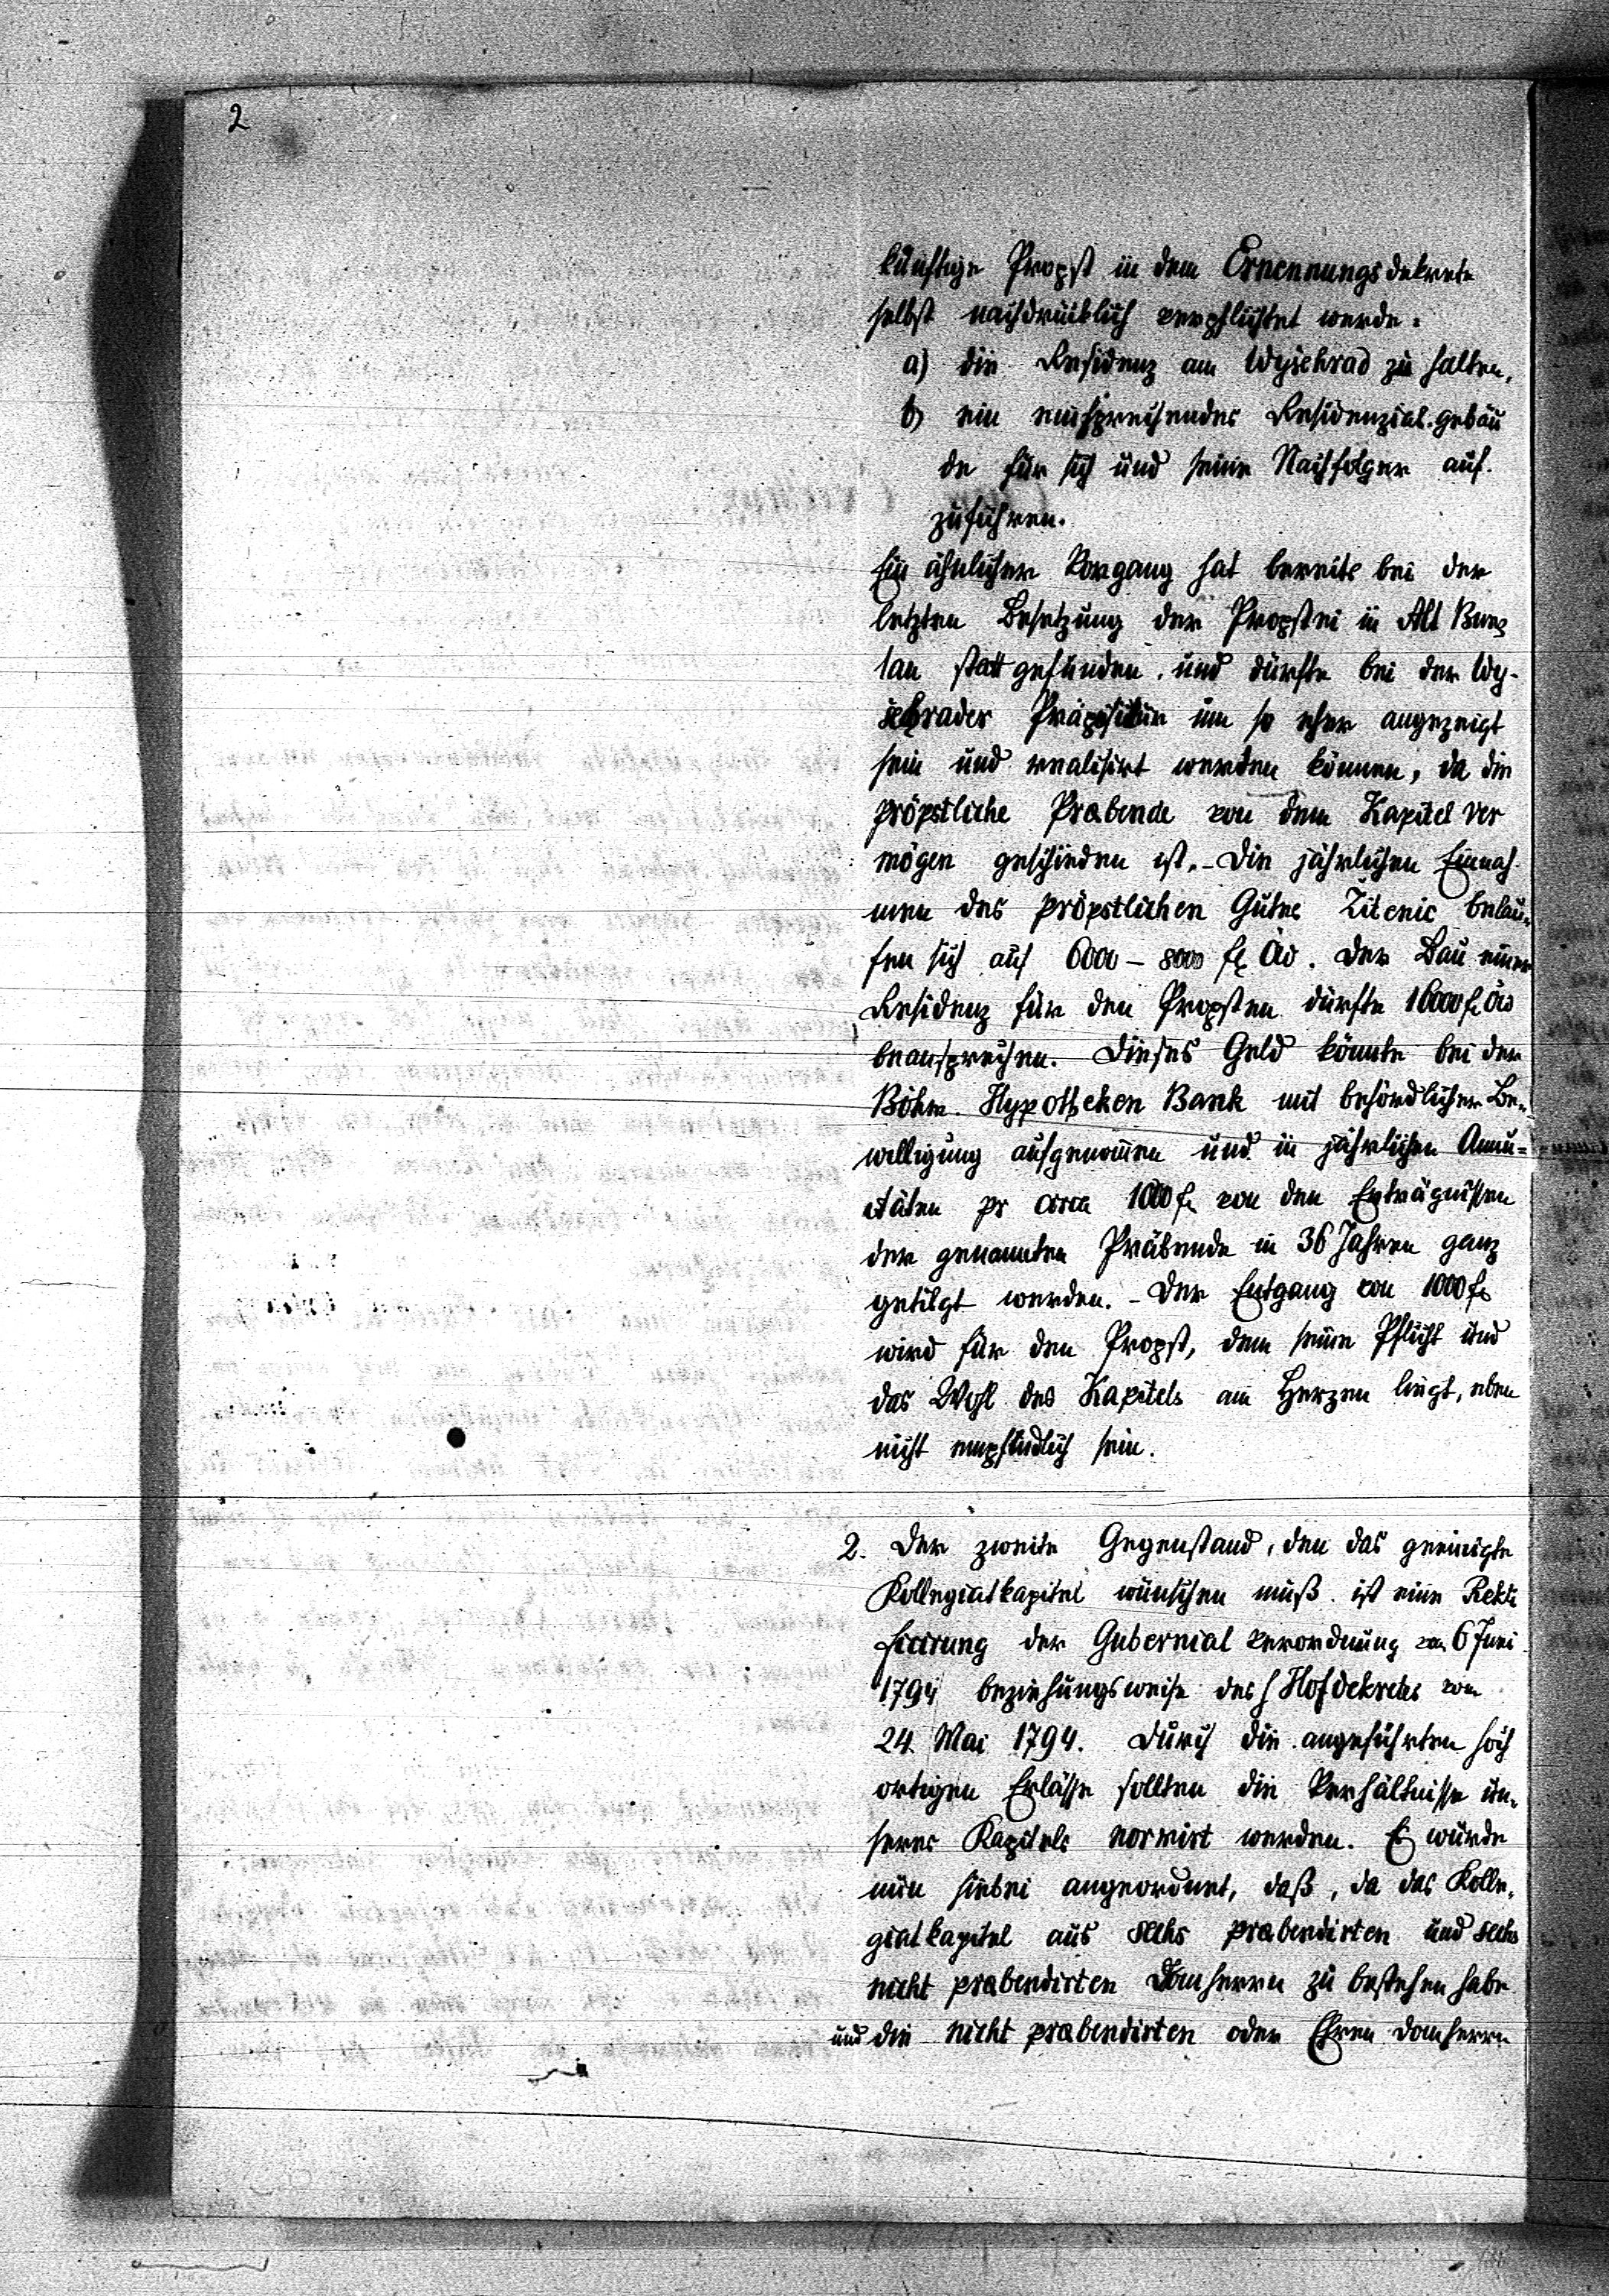 2
künftige Propst in dem Ernennungsdekrete
selbst nachdrücklich verpflichtet werde:
a) die Residenz am Wyšehrad zu halten,
b) ein entsprechendes Residenzial-gebäu
de für sich und seine Nachfolger auf-
zuführen.
Ein ähnlicher Vorgang hat bereits bei der
letzten Besetzung der Propstei in Alt Bunz
lau statt gefunden, und dürfte bei der Wy-
šehrader Präpositur um so eher angezeigt
sein und realisirt werden können, da die
pröpstliche Præbende von dem Kapitel ver
mögen geschieden ist. – Die jährlichen Einnah-
men des pröpstlichen Gutes Žitenic belau-
fen sich auf 6000 – 8000 fl Öw. Der Bau einer
Residenz für den Propsten dürfte 16000 fl Öw
beanspruchen. Dieses Geld könnte bei der
Böhm. Hypotheken Bank mit behördlicher Be-
willigung aufgenommen und in jährlichen Annu=
itäten pr circa 1000 fl von den Erträgnissen
der genannten Präbende in 36 Jahren ganz
getilgt werden. – Der Entgang von 1000 fl
wird für den Propst, dem seine Pflicht und
das Wohl des Kapitels am Herzen liegt, eben
nicht empfindlich sein.
2. Der zweite Gegenstand, den das geeinigte
Kollegiatkapitel wünschen muß, ist eine Rekti
ficirung der Gubernial verordnung vom 6 Juni
1794 beziehungsweise des h Hofdekretes vom
24. Mai 1794. Durch die angeführten hoch
ortigen Erlässe sollten die Verhältnisse un-
seres Kapitels normirt werden. Es wurde
nun hiebei angeordnet, daß, da das Kolle-
giatkapitel aus sechs præbendirten und sechs
nicht præbendirten Domherrn zu bestehen habe
und die nicht præbendirten oder Ehren domherrn